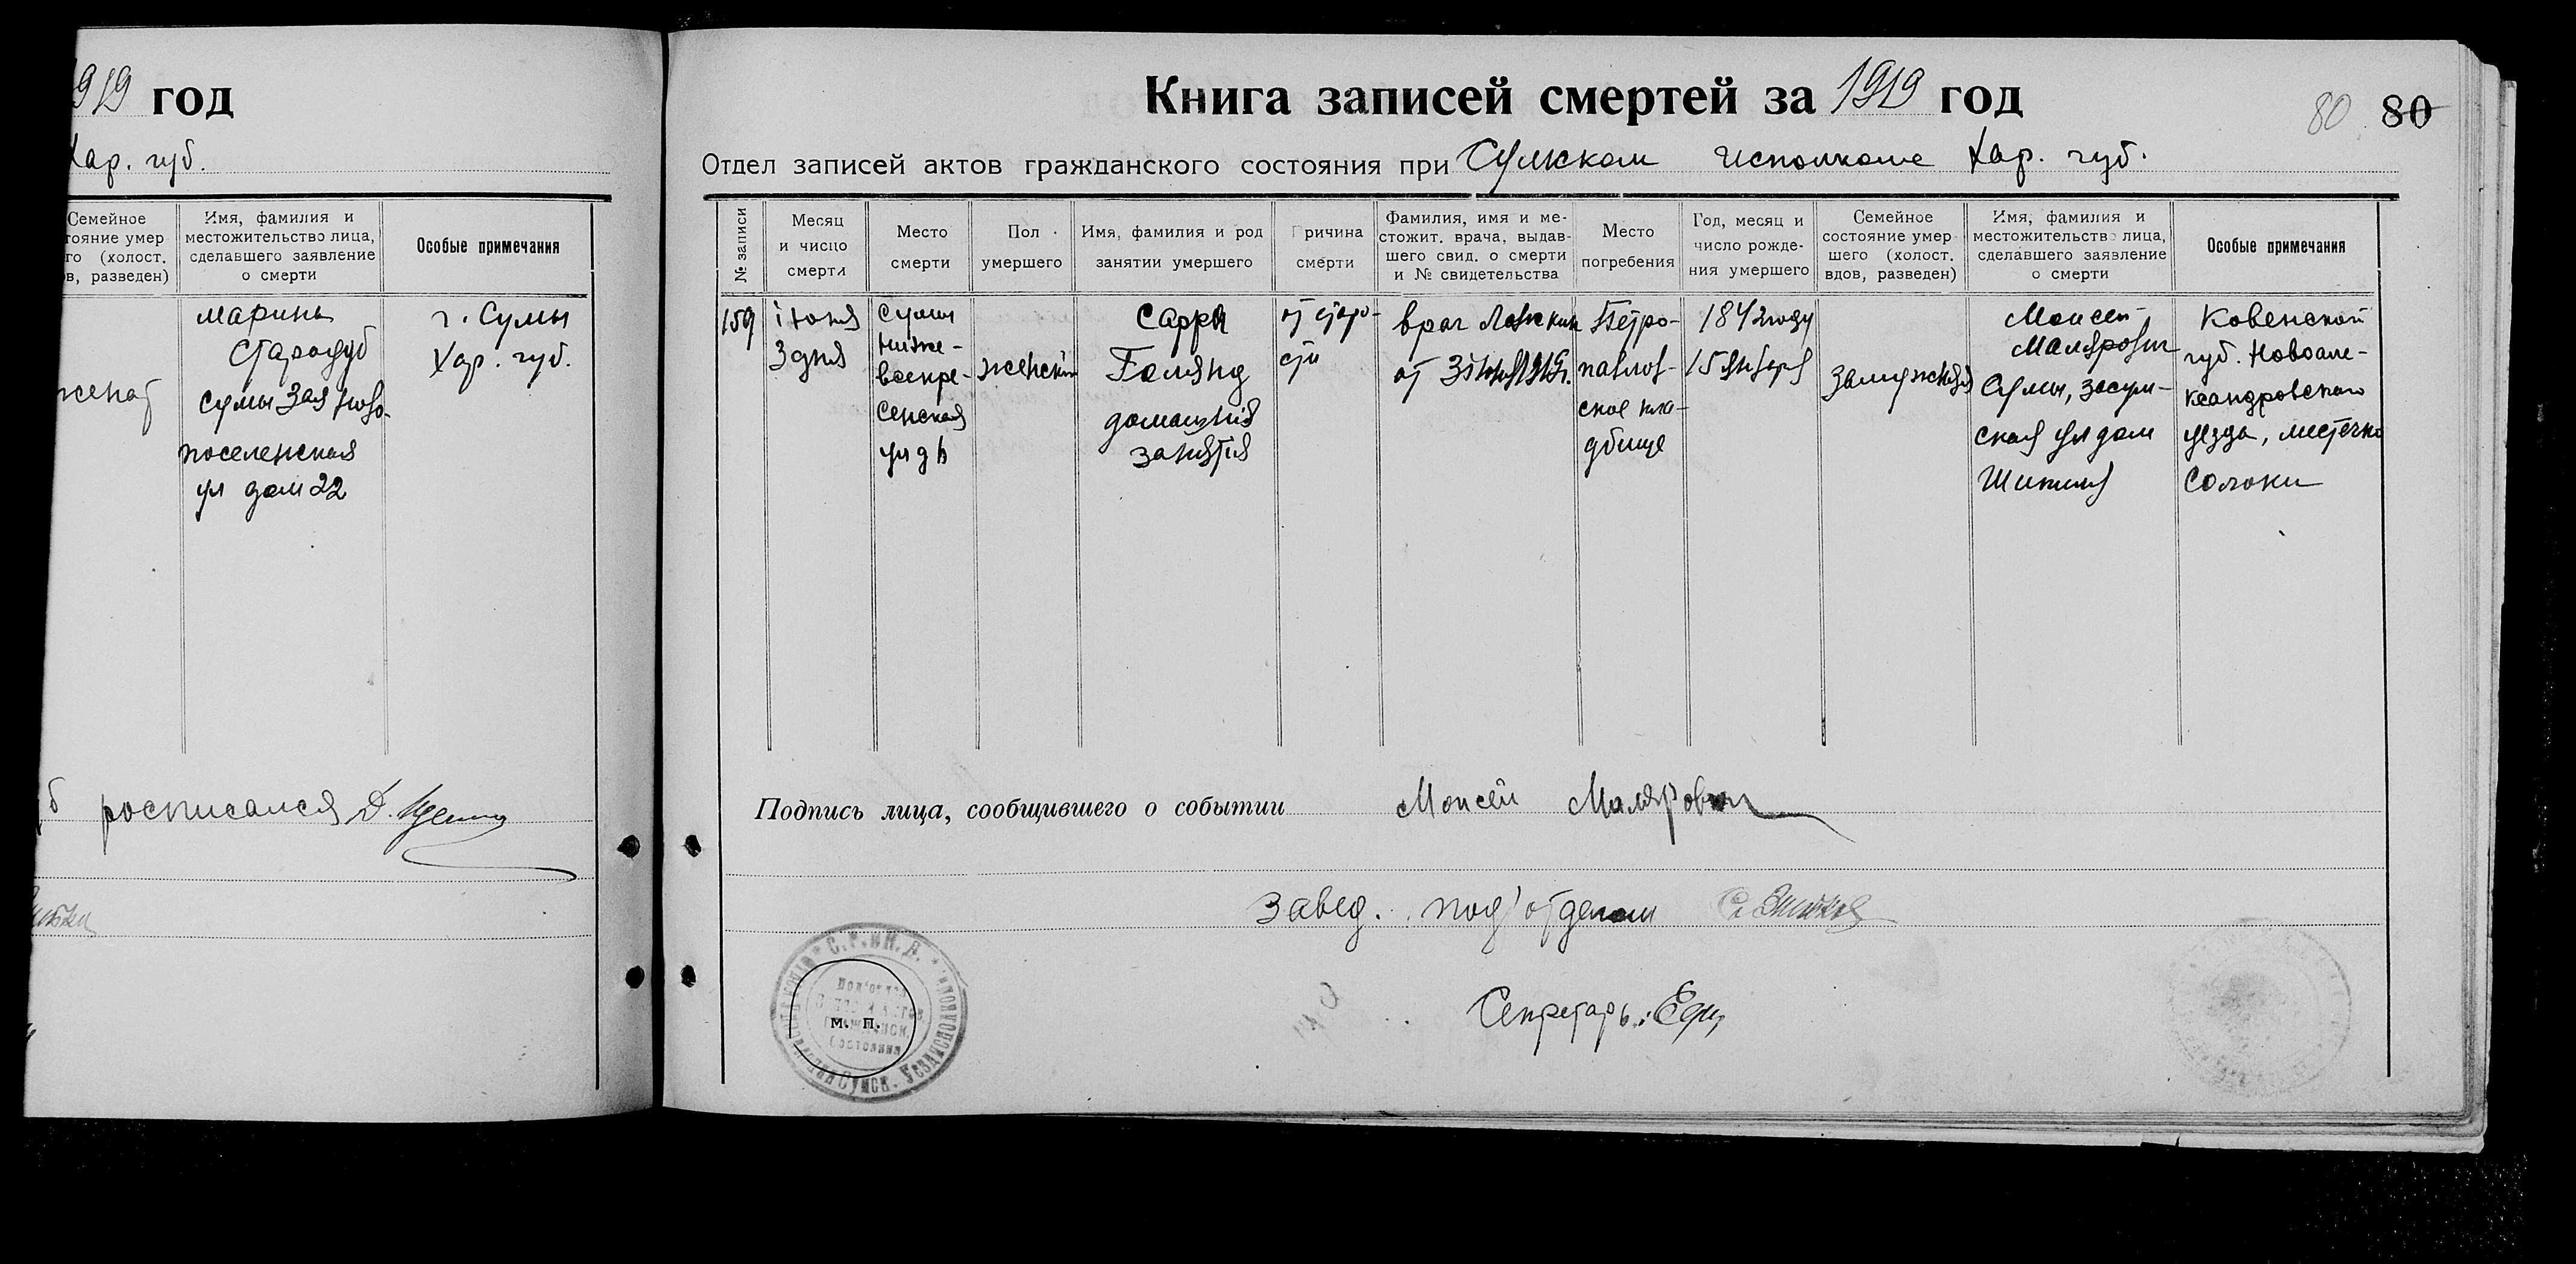 1919 год
Хар. губ.
Семейное
Имя, фамилия и
местожительство лица,
сделавшего заявление
о смерти
Особые примечания
марина
Стародуб
сумы Зая Ново-
поселенская
ул дом 22
г. Сумы
Хар. губ.
росписался
Книга записей смертей за 1919 год
80 80
Отдел записей актов гражданского состояния при Сумском исполкоме Хар. губ.
№ записи
Месяц
и число
смерти
Место
смерти
Пол
умершего
Имя, фамилия и род
занятии умершего
Причина
смерти
Фамилия, имя и ме-
стожит. врача, выдав-
шего свид. о смерти
и № свидетельства
Место
погребения
Год, месяц и
число рожде-
ния умершего
Семейное
состояние умер-
шего (холост.
вдов, разведен)
Имя, фамилия и
местожительство лица,
сделавшего заявление
о смерти
Особые примечания
159
іюня
3 дня
Сумы
Ниже-
воскре-
сенская
ул д 6
женскій
Сарра
Голянд
домашнія
занятія
от старо-
сти
врач
от 3 іюня 1919г.
Петро-
павлов-
ское кла-
дбище
1842 году
15 января
Замужняя
Моисей
Малярович
Сумы, засум-
ская ул дом
Ковенской
губ. Новоале-
ксандровскаго
уезда, местечко
Солоки
Подпись лица, сообщившего о событии Моисей Малярович
Завед. под'отделом
Секретарь:
м. п.